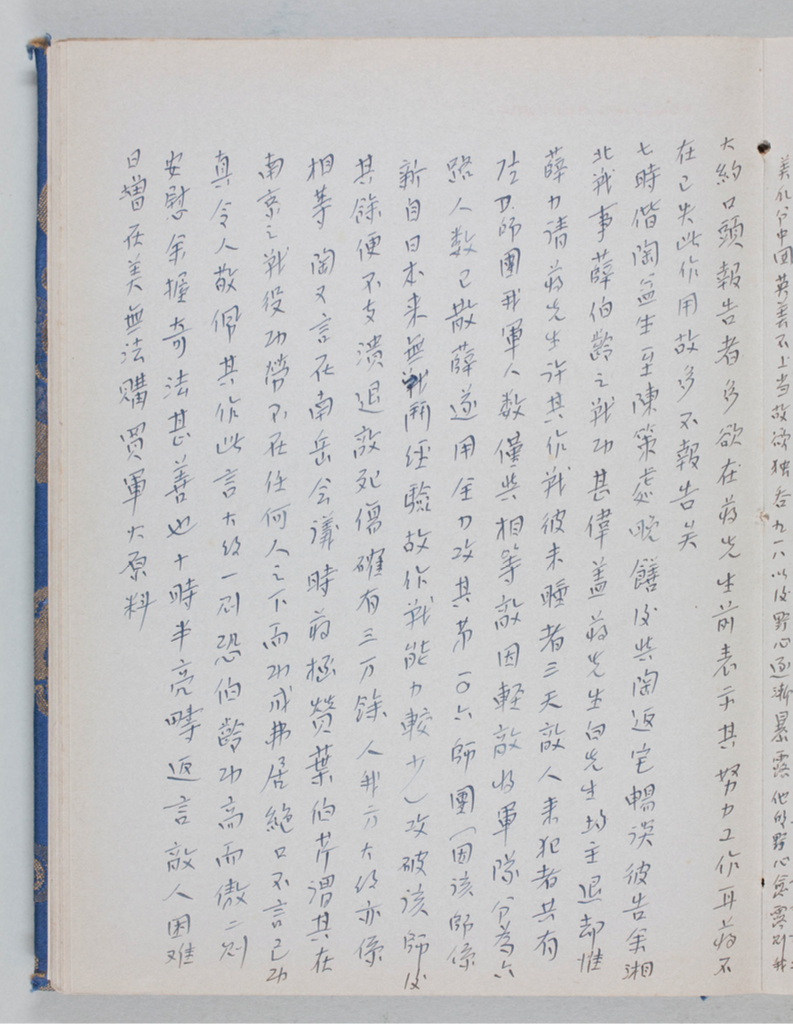 美化分中国英美不上当故欲独吞九一八以后野心逐漸暴露他的野心愈露則我
大約口頭報告者多欲在蔣先生前表示其努力工作耳蔣不
在已失此作用故多不報告矣
七時偕陶益生至陳策處晚饍後與陶返宅暢談彼告余湘
北戦事薛伯齡之戦功甚偉蓋蔣先生白先生均主退却惟
薛力請蔣先生許其作戦彼未睡者三天敵人来犯者共有
師團我軍人数僅與相等敵因輕敵将軍隊分為六
路人数已散薛遂用全力攻其第一〇六師團(因該師係
新自日本来無戦鬥经驗故作戦能力較少)攻破該師後
其餘便不支潰退敵死傷確有三万餘人我方大约亦係
相等陶又言在南岳会議時蔣極赞葉伯芹謂其在
南京之戦役功勞不在任何人之下而功成弗居絕口不言己功
真令人敬佩其作此言大约一則恐伯齡功高而傲二則
安慰余握奇法甚善也十時半亮疇返言敵人困难
日增在美無法購買軍火原料